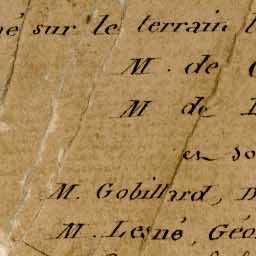 né sur le terrain
M. de
M de
et so
M. Gobillard,
M. Lesné, Géo